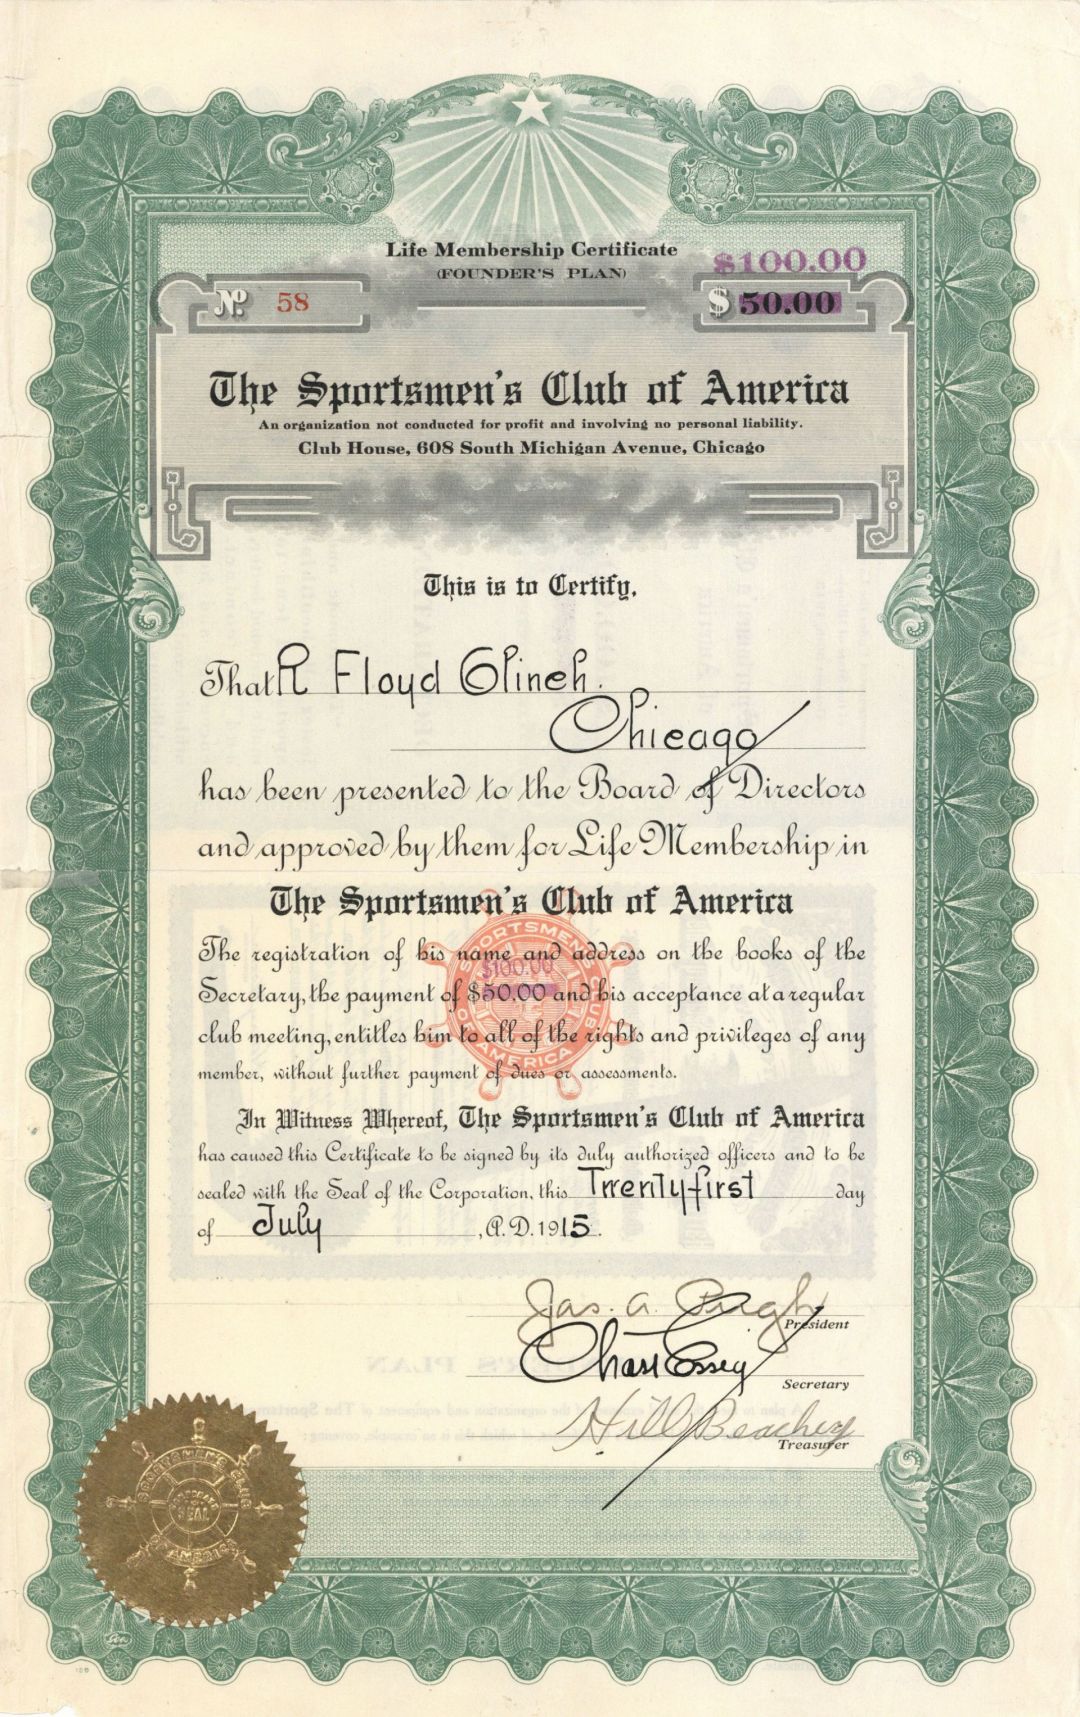 Life Membership Certificate
(FOUNDER'S PLAN)
$100.00
No. 58
$ 50.00
The Sportsmen's Club of America
An organization not conducted for profit and involving no personal liability.
Club House, 608 South Michigan Avenue, Chicago
This is to Certify,
That R Floyd Clinch.
Chicago
has been presented to the Board of Directors
and approved by them for Life Membership in
The Sportsmen's Club of America
The registration of his name and address on the books of the
$100.00
Secretary, the payment of $50.00 and his acceptance at a regular
club meeting, entitles him to all of the rights and privileges of any
member, without further payment of dues or assessments.
SPORTSMEN'S CLUB
OF AMERICA
In Witness Whereof, The Sportsmen's Club of America
has caused this Certificate to be signed by its duly authorized officers and to be
sealed with the Seal of the Corporation, this Twenty first day
of July, A.D. 1915.
Jas. A. Pugh
President
Secretary
Hill Beachey
Treasurer
SPORTSMEN'S CLUB
CORPORATE
SEAL
OF AMERICA